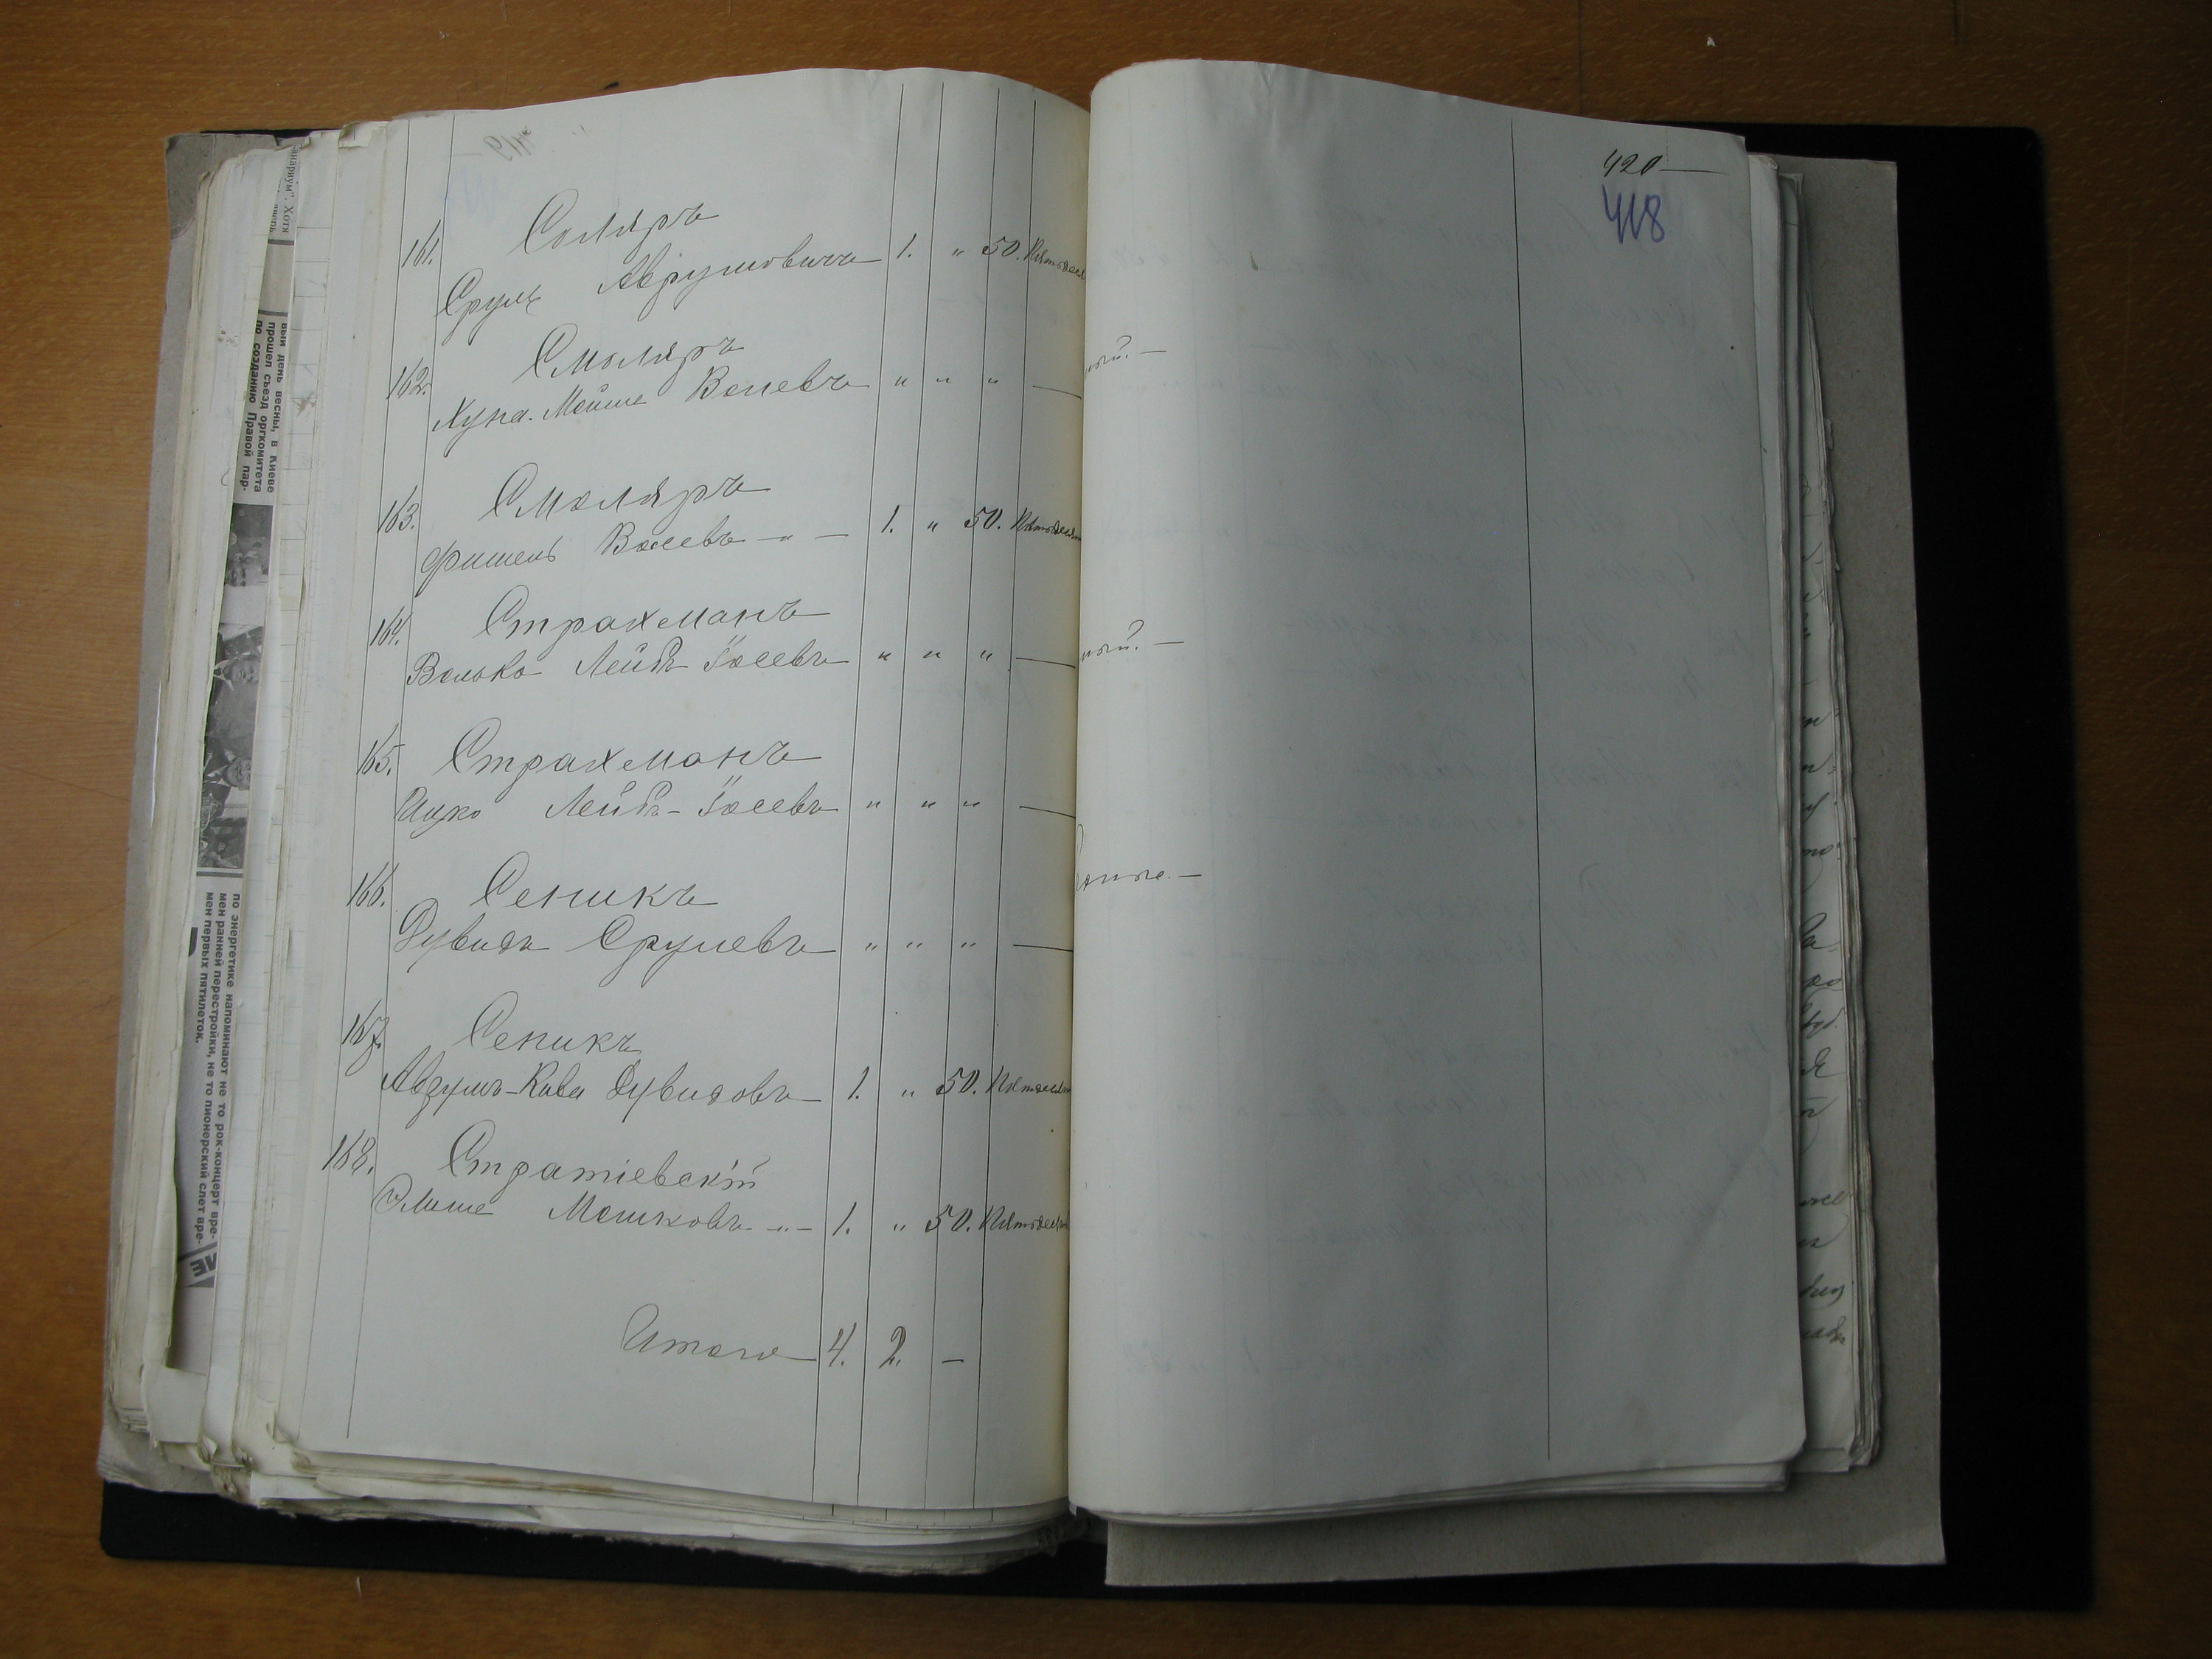 161. Соляръ
Сруль Аврумовичъ 1. " 50. Пятьдеся
162. Смоляръ
Хуна-Мойше Волевъ " " " —
163. Смоляръ
Фишель Волевъ - " - 1. " 50. Пятьдеся
164. Страхманъ
Волько Лейбъ Іосевъ " " " —
165. Страхманъ
Ицко Лейбъ-Іосевъ " " " —
166. Сеникъ
Дувидъ Срулевъ " " " —
167. Сеникъ
Аврумъ-Кива Дувидовъ 1. " 50. Пятьдеся
168. Стратіевскій
Элише Мошковъ - " - 1. " 50. Пятьдеся
Итого 4. 2. —
420
418
ный. —
ный. —
анариум". Хотя
вый день весны, в Киеве
прошел съезд оргкомитета
по созданию Правой пар-
по энергетике напоминают не то рок-концерт вре-
мен ранней перестройки, не то пионерский слет вре-
мен первых пятилеток.